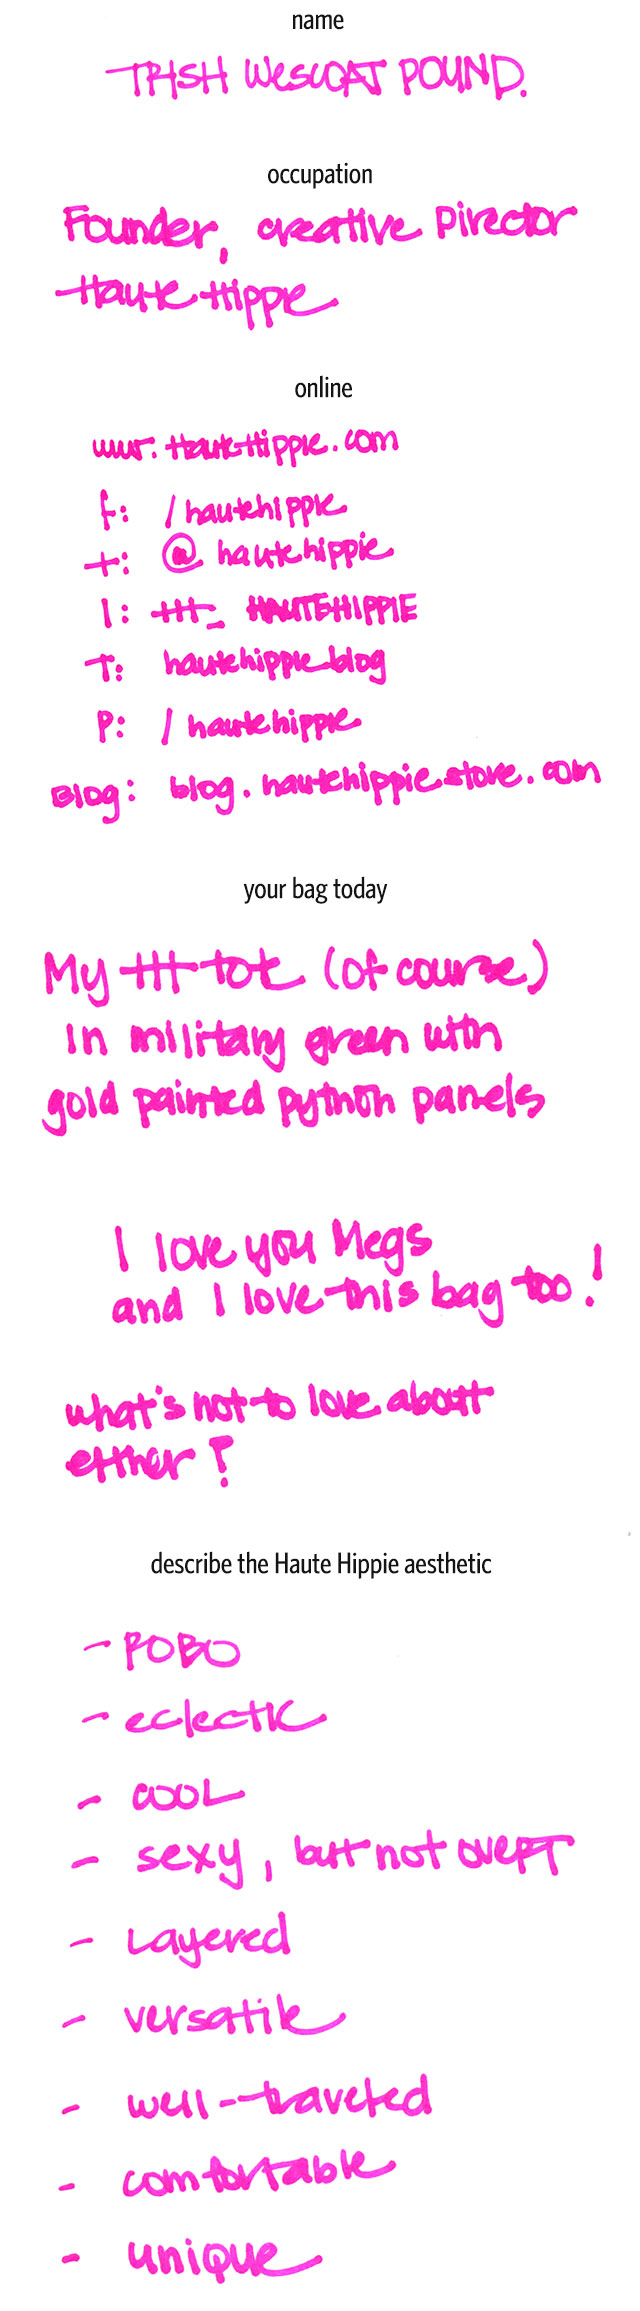 name
TRISH WESCOAT POUND.
occupation
Founder, creative Director
Haute Hippie
online
www.HauteHippie.com
f: /hautehippie
t: @hautehippie
I: HH_HAUTEHIPPIE
T: hautehippieblog
P: /hautehippie
Blog: blog.hautehippiestore.com
your bag today
My HH tote (of course)
in military green with
gold painted python panels
I love you Megs
and I love this bag too!
what's not to love about
either?
describe the Haute Hippie aesthetic
- BOBO
- eclectic
- COOL
- sexy, but not overt
- Layered
- versatile
- well-traveled
- comfortable
- unique